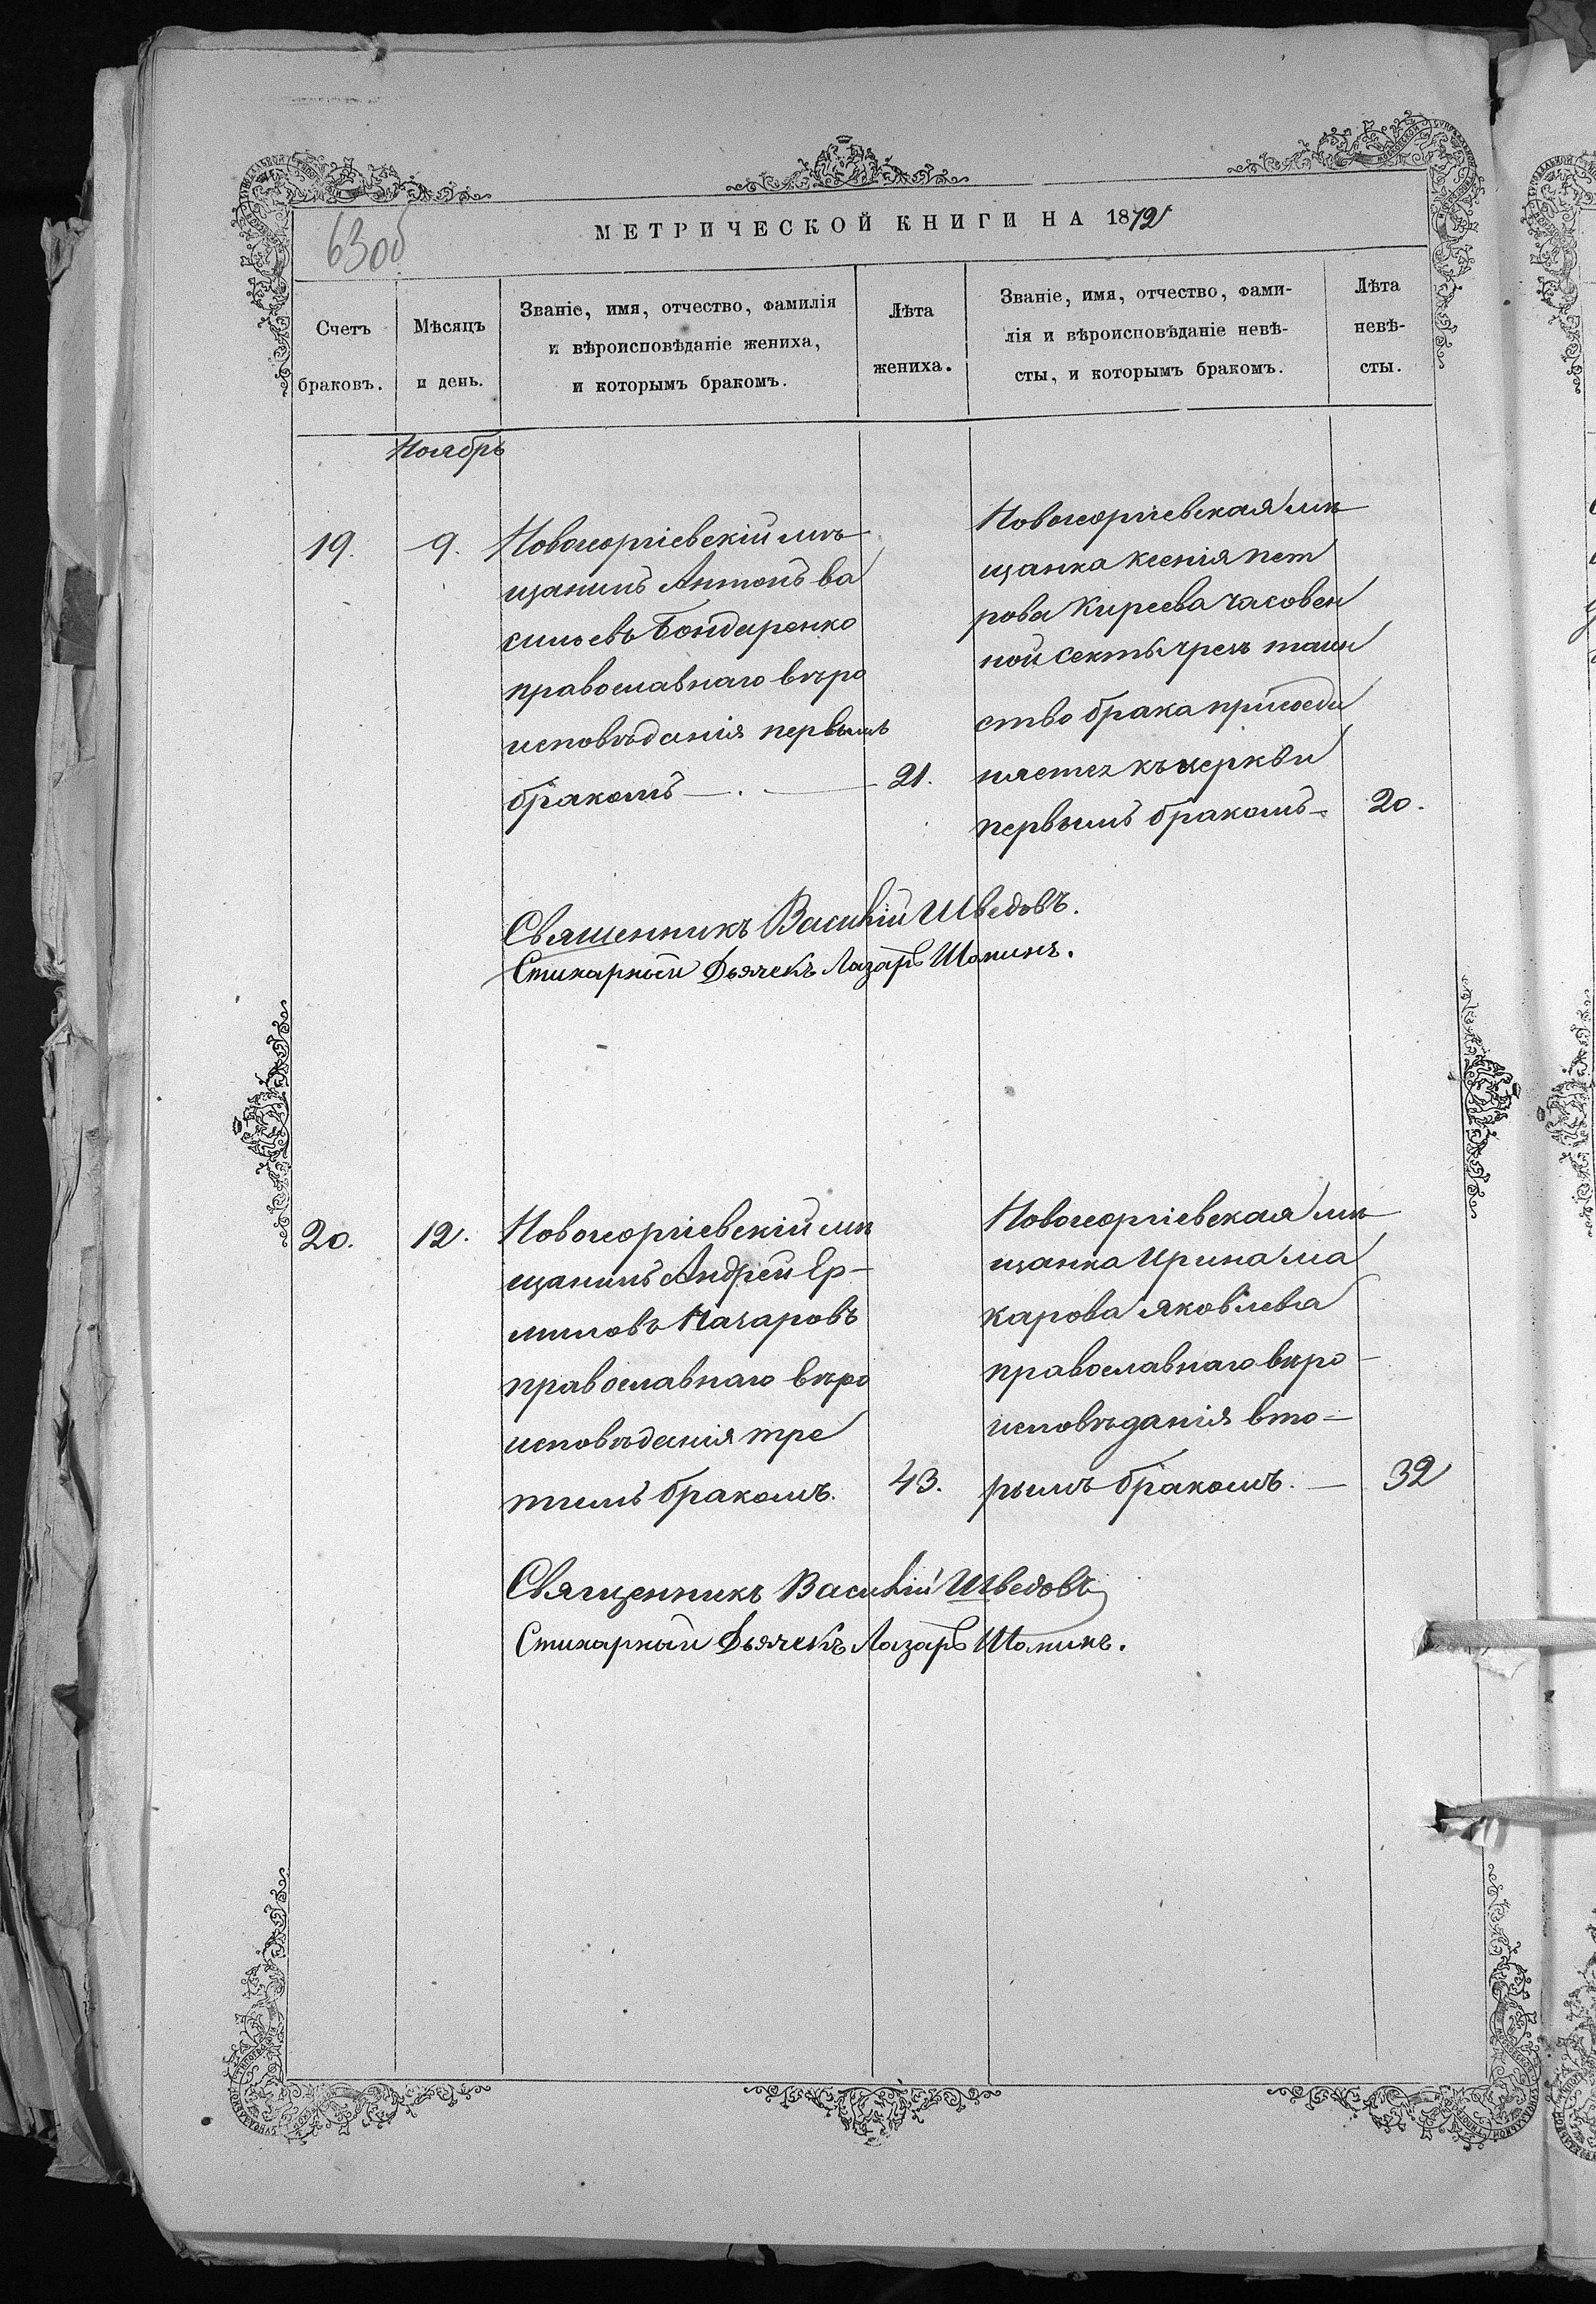 63об
МЕТРИЧЕСКОЙ КНИГИ НА 1872
Счетъ
браковъ.
Мѣсяцъ
и день.
Званіе, имя, отчество, фамилія
и вѣроисповѣданіе жениха,
и которымъ бракомъ.
Лѣта
жениха.
Званіе, имя, отчество, фами-
лія и вѣроисповѣданіе невѣ-
сты, и которымъ бракомъ.
Лѣта
невѣ-
сты.
Ноябрь
19.
9.
Новогоргіевскій мѣ
щанинъ Антонъ Ва
сильевъ Бондаренко
православнаго вѣро
исповѣданія первымъ
бракомъ — . —
21.
Новогеоргіевская мѣ
щанка Ксенія Пет
рова Киреева часовен
ной секты чрезъ таин
ство брака присоеди
няется къ церкви
первымъ бракомъ
20.
Священникъ Василій Шведовъ.
Стихарный Дьячекъ Лазарь Шамин.
20.
12.
Новогеоргіевскій мѣ
щанинъ Андрей Ер-
миловъ Качаровъ
православнаго вѣро
исповѣданія тре
тимъ бракомъ.
43.
Новогеоргіевская мѣ
щанка Ирина Ма
карова Яковлева
православнаго вѣро-
исповѣданія вто-
рымъ бракомъ. —
32
Священникъ Василій Шведовъ
Стихарный Дьячекъ Лазарь Шамин.